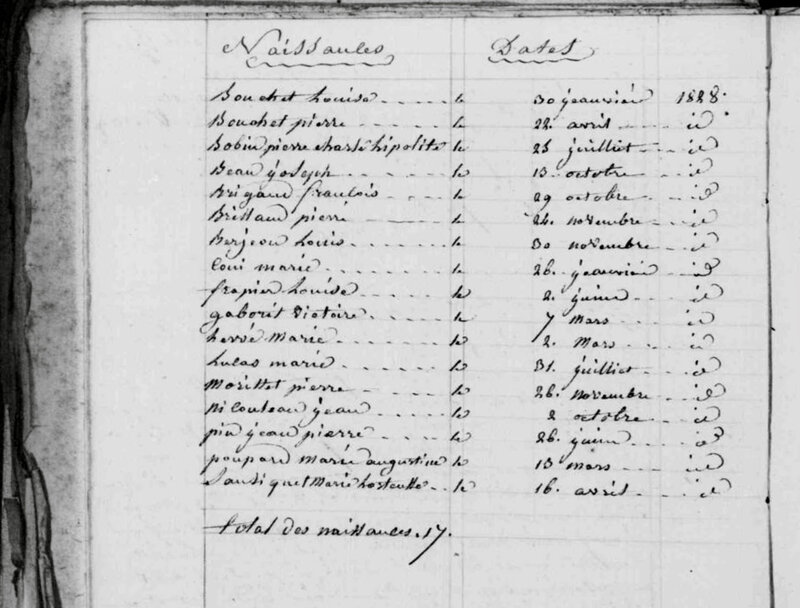 Naissances Dates
Bouchet Louise . . . . . le 30 jeanvié 1828.
Bouchet pierre . . . . . le 22. avril . . . id
Bobin pierre charle hipolite le 25 juilliet . . . id
Beau joseph . . . . . le 13. octobre . . . id
Brigaud francois . . . . le 29 octobre . . . id
Brillaud pierre . . . . le 24. novembre . . . id
Berjeon Louis . . . . . le 30 novembre . . . id
marie . . . . . le 26. jeanvié . . . id
frapier Louise . . . . . le 2. juin . . . id
gaborit Victoire . . . . le 7 mars . . . id
hervé Marie . . . . . le 2. Mars . . . id
Lucas marie . . . . . le 31. juilliet . . . id
Morillet pierre . . . . le 26. novembre . . . id
nicouleau jean . . . . . le 2 octobre . . . id
pin jean pierre . . . . le 26. juin . . . id
poupard marie augustine le 13 mars . . . id
Marie . . le 16. avril . . . id
total des naissances. 17.